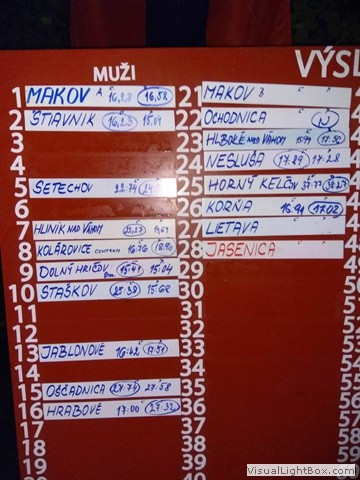 MUŽI
VÝSL
1 MAKOV A 16,88 16,58
2 ŠTIAVNIK 16,23 15,04
3
4
5 SETECHOV
6
7 HLINÍK NAD VÁHOM
8 KOLÁROVICE CENTRUM 16,76
9 DOLNÝ HRIČOV 15,41 15,04
10 STAŠKOV 25,38 15,68
11
12
13 JABLONOVÉ 16,42 17,51
14
15 OŠČADNICA 27,74 27,58
16 HRABOVÉ 17,00 27,32
17
18
19
21 MAKOV B
22 OCHODNICA N
23 HLBOKÉ NAD VÁHOM
24 NESLUŠA 17,29 17,28
25 HORNÝ KELČOV
26 KORNA 16,91 17,02
27 LIETAVA
28 JASENICA
29
30
31
32
33
34
35
36
37
38
39
VisualLightBox.com